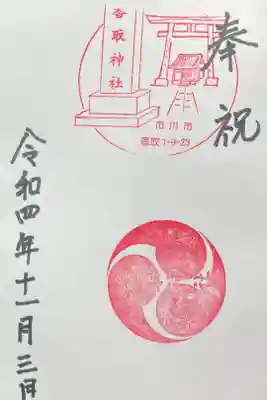 奉祝
香取神社
市川市
香取1-9-23
令和四年十一月三日